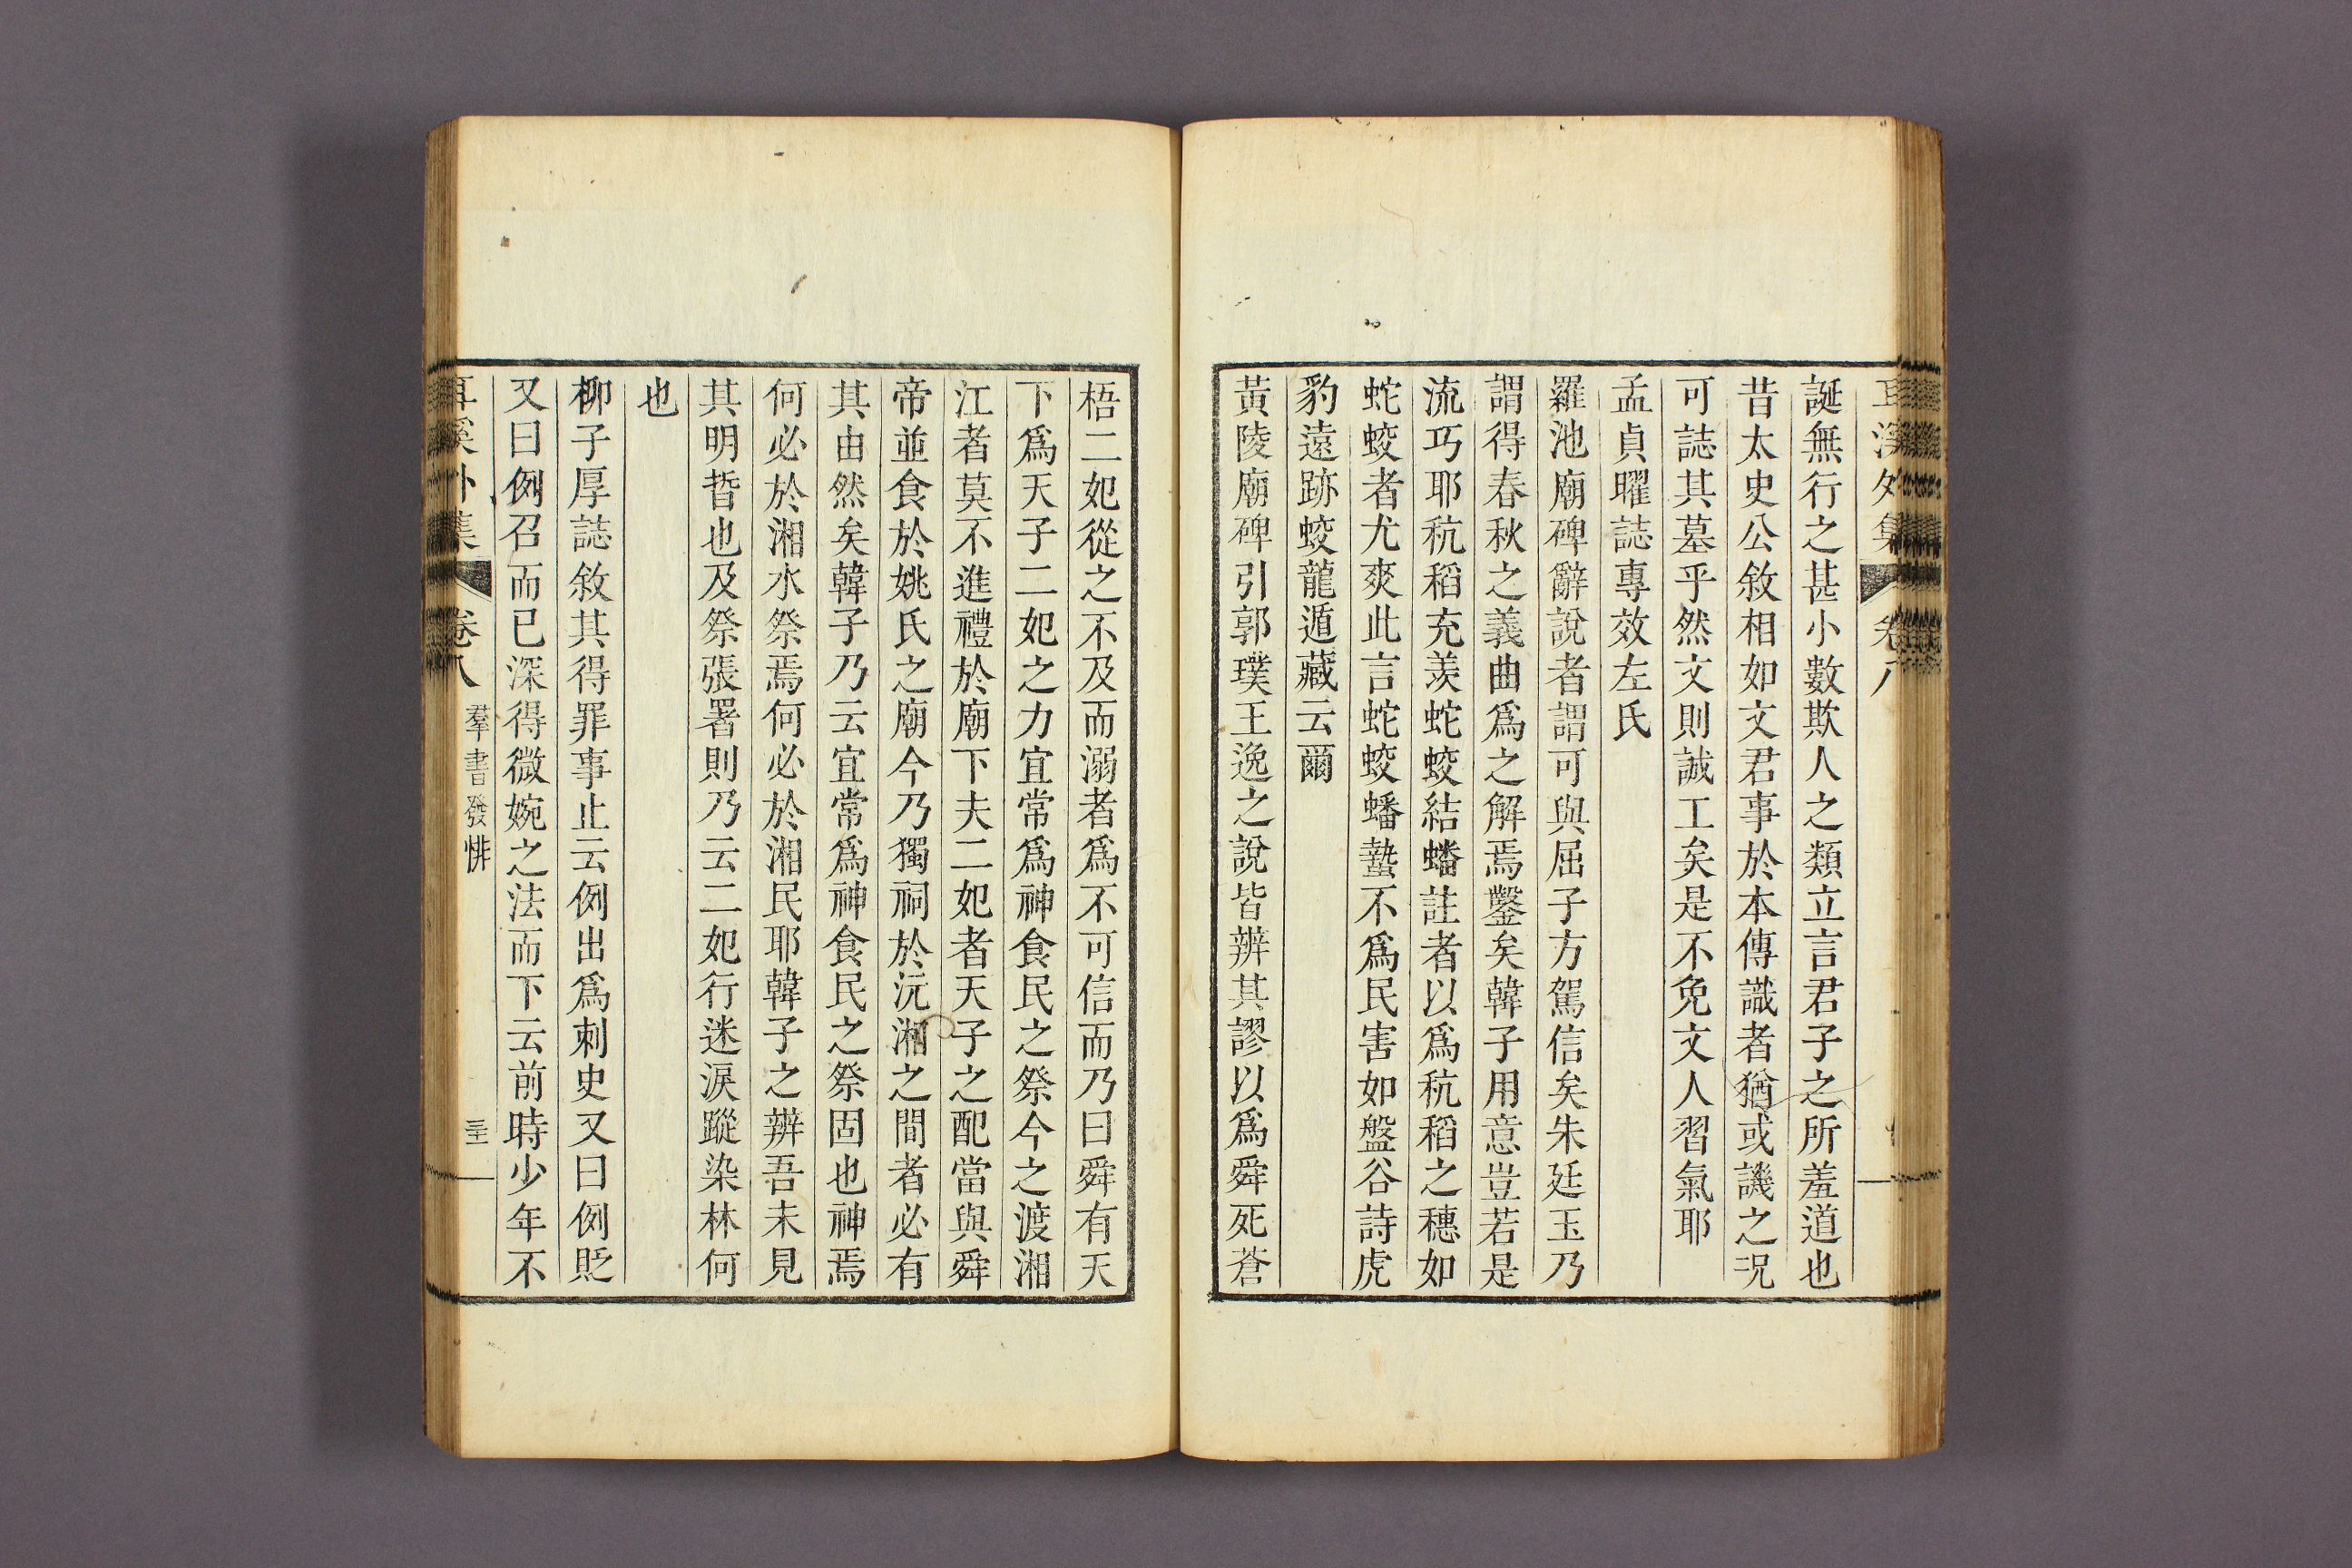 耳溪外集 卷八
誕無行之甚小數欺人之類立言君子之所羞道也
昔太史公敘相如文君事於本傳識者猶或譏之況
可誌其墓乎然文則誠工矣是不免文人習氣耶
孟貞曜誌專效左氏
羅池廟碑辭說者謂可與屈子方駕信矣朱廷玉乃
謂得春秋之義曲爲之解焉鑿矣韓子用意豈若是
流巧耶秔稻充羨蛇蛟結蟠註者以爲秔稻之穗如
蛇蛟者尤爽此言蛇蛟蟠蟄不爲民害如盤谷詩虎
豹遠跡蛟龍遁藏云爾
黃陵廟碑引郭璞王逸之說皆辨其謬以爲舜死蒼
梧二妃從之不及而溺者爲不可信而乃曰舜有天
下爲天子二妃之力宜常爲神食民之祭今之渡湘
江者莫不進禮於廟下夫二妃者天子之配當與舜
帝並食於姚氏之廟今乃獨祠於沅湘之間者必有
其由然矣韓子乃云宜常爲神食民之祭固也神焉
何必於湘水祭焉何必於湘民耶韓子之辨吾未見
其明晢也及祭張署則乃云二妃行迷淚蹤染林何
也
柳子厚誌敘其得罪事止云例出爲刺史又曰例貶
又曰例召而已深得微婉之法而下云前時少年不
耳溪外集 卷八 羣書發悱 三十二